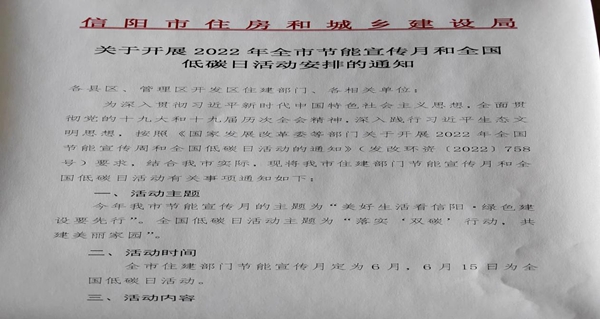 信阳市住房和城乡建设局
关于开展2022年全市节能宣传月和全国
低碳日活动安排的通知
各县区、管理区开发区住建部门、各相关单位：
为深入贯彻习近平新时代中国特色社会主义思想，全面贯
彻党的十九大和十九届历次全会精神，深入践行习近平生态文
明思想，按照《国家发展改革委等部门关于开展2022年全国
节能宣传周和全国低碳日活动的通知》（发改环资（2022）758
号）要求，结合我市实际，现将我市住建部门节能宣传月和全
国低碳日活动有关事项通知如下：
一、活动主题
今年我市节能宣传月的主题为“美好生活看信阳·绿色建
设要先行”。全国低碳日活动主题为“落实‘双碳’行动，共
建美丽家园”。
二、活动时间
全市住建部门节能宣传月定为6月，6月15日为全
国低碳日活动。
三、活动内容